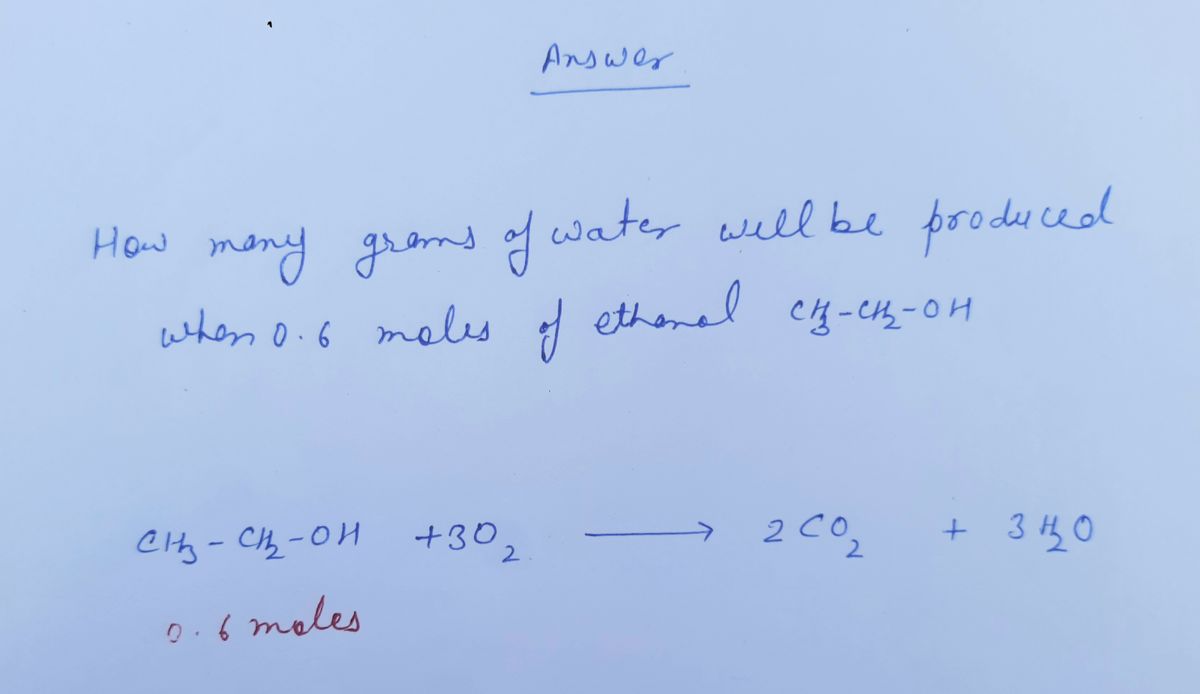 Answer
How many grams of water will be produced
when 0.6 moles of ethanol CH₃-CH₂-OH
CH₃-CH₂-OH +3O₂ → 2CO₂ + 3H₂O
0.6 moles